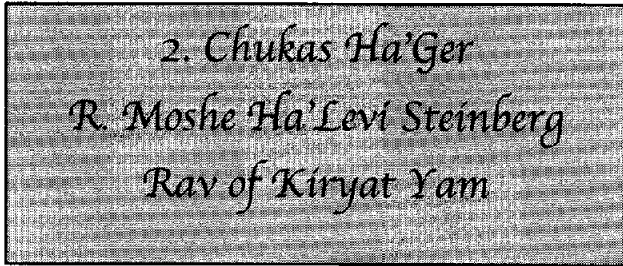 2. Chukas Ha'Ger
R. Moshe Ha'Levi Steinberg
Rav of Kiryat Yam